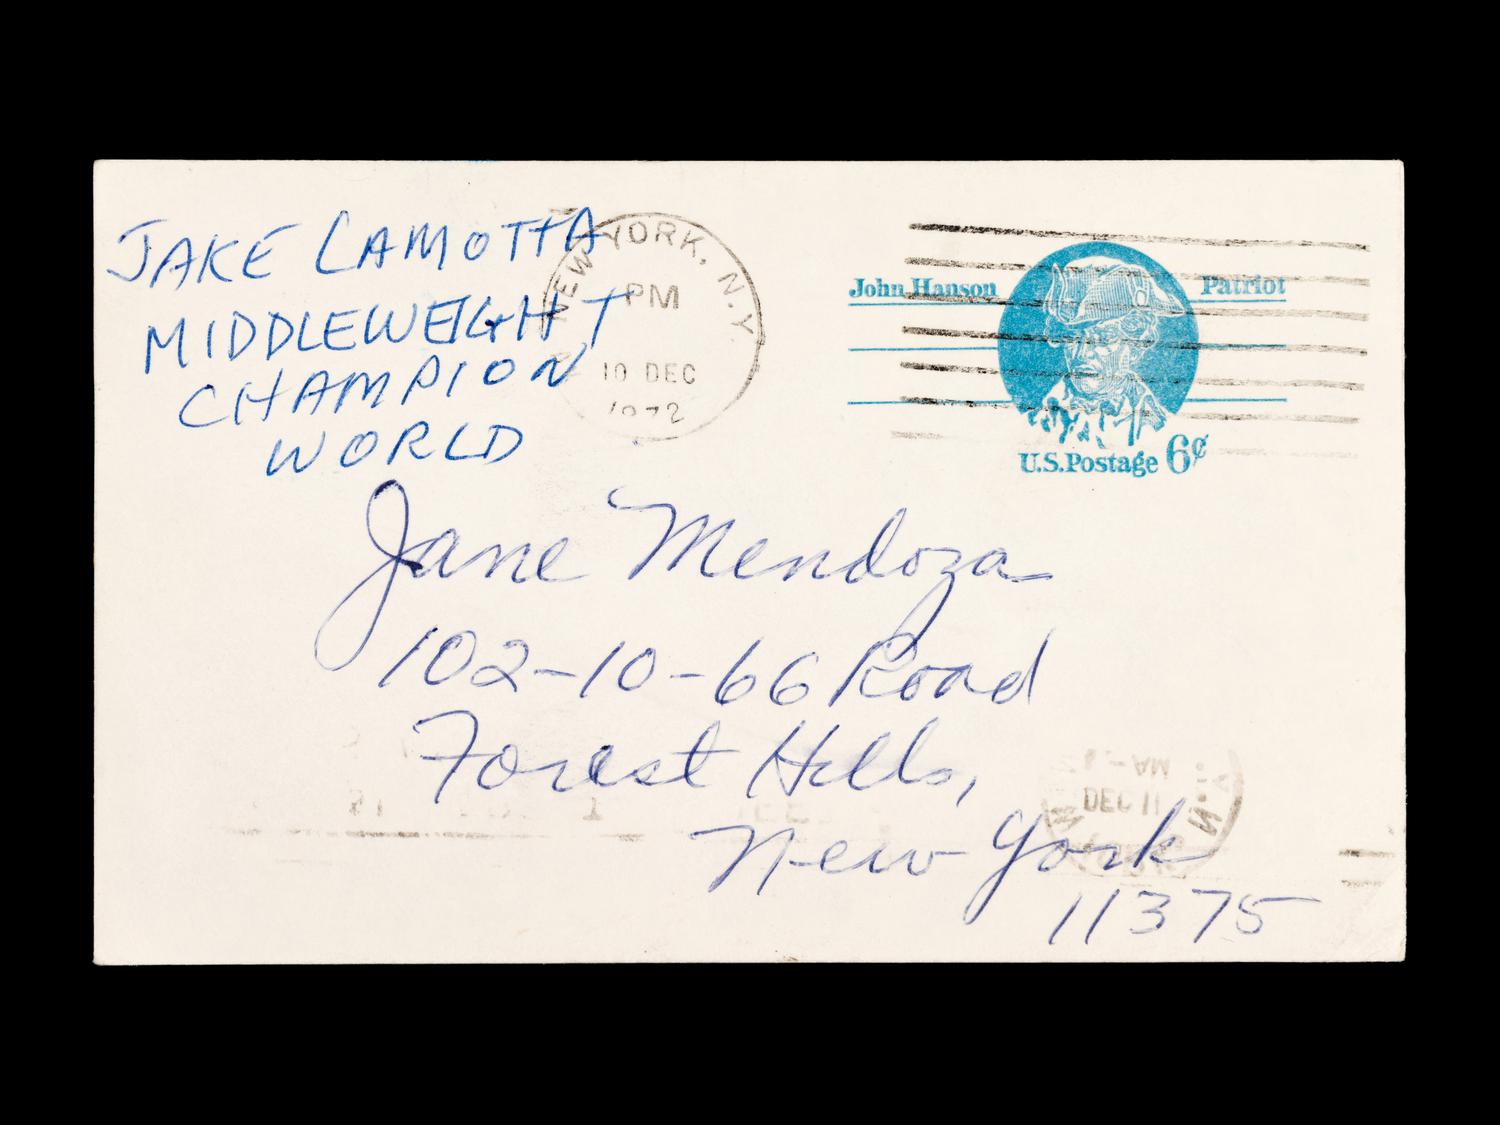 JAKE LAMOTTA
MIDDLEWEIGHT
CHAMPION
WORLD
NEW YORK, N.Y
PM
10 DEC
1972
John Hanson Patriot
U.S.Postage 6¢
Jane Mendoza
102-10-66 Road
Forest Hills,
New York
11375
AM
DEC 11
N.Y.